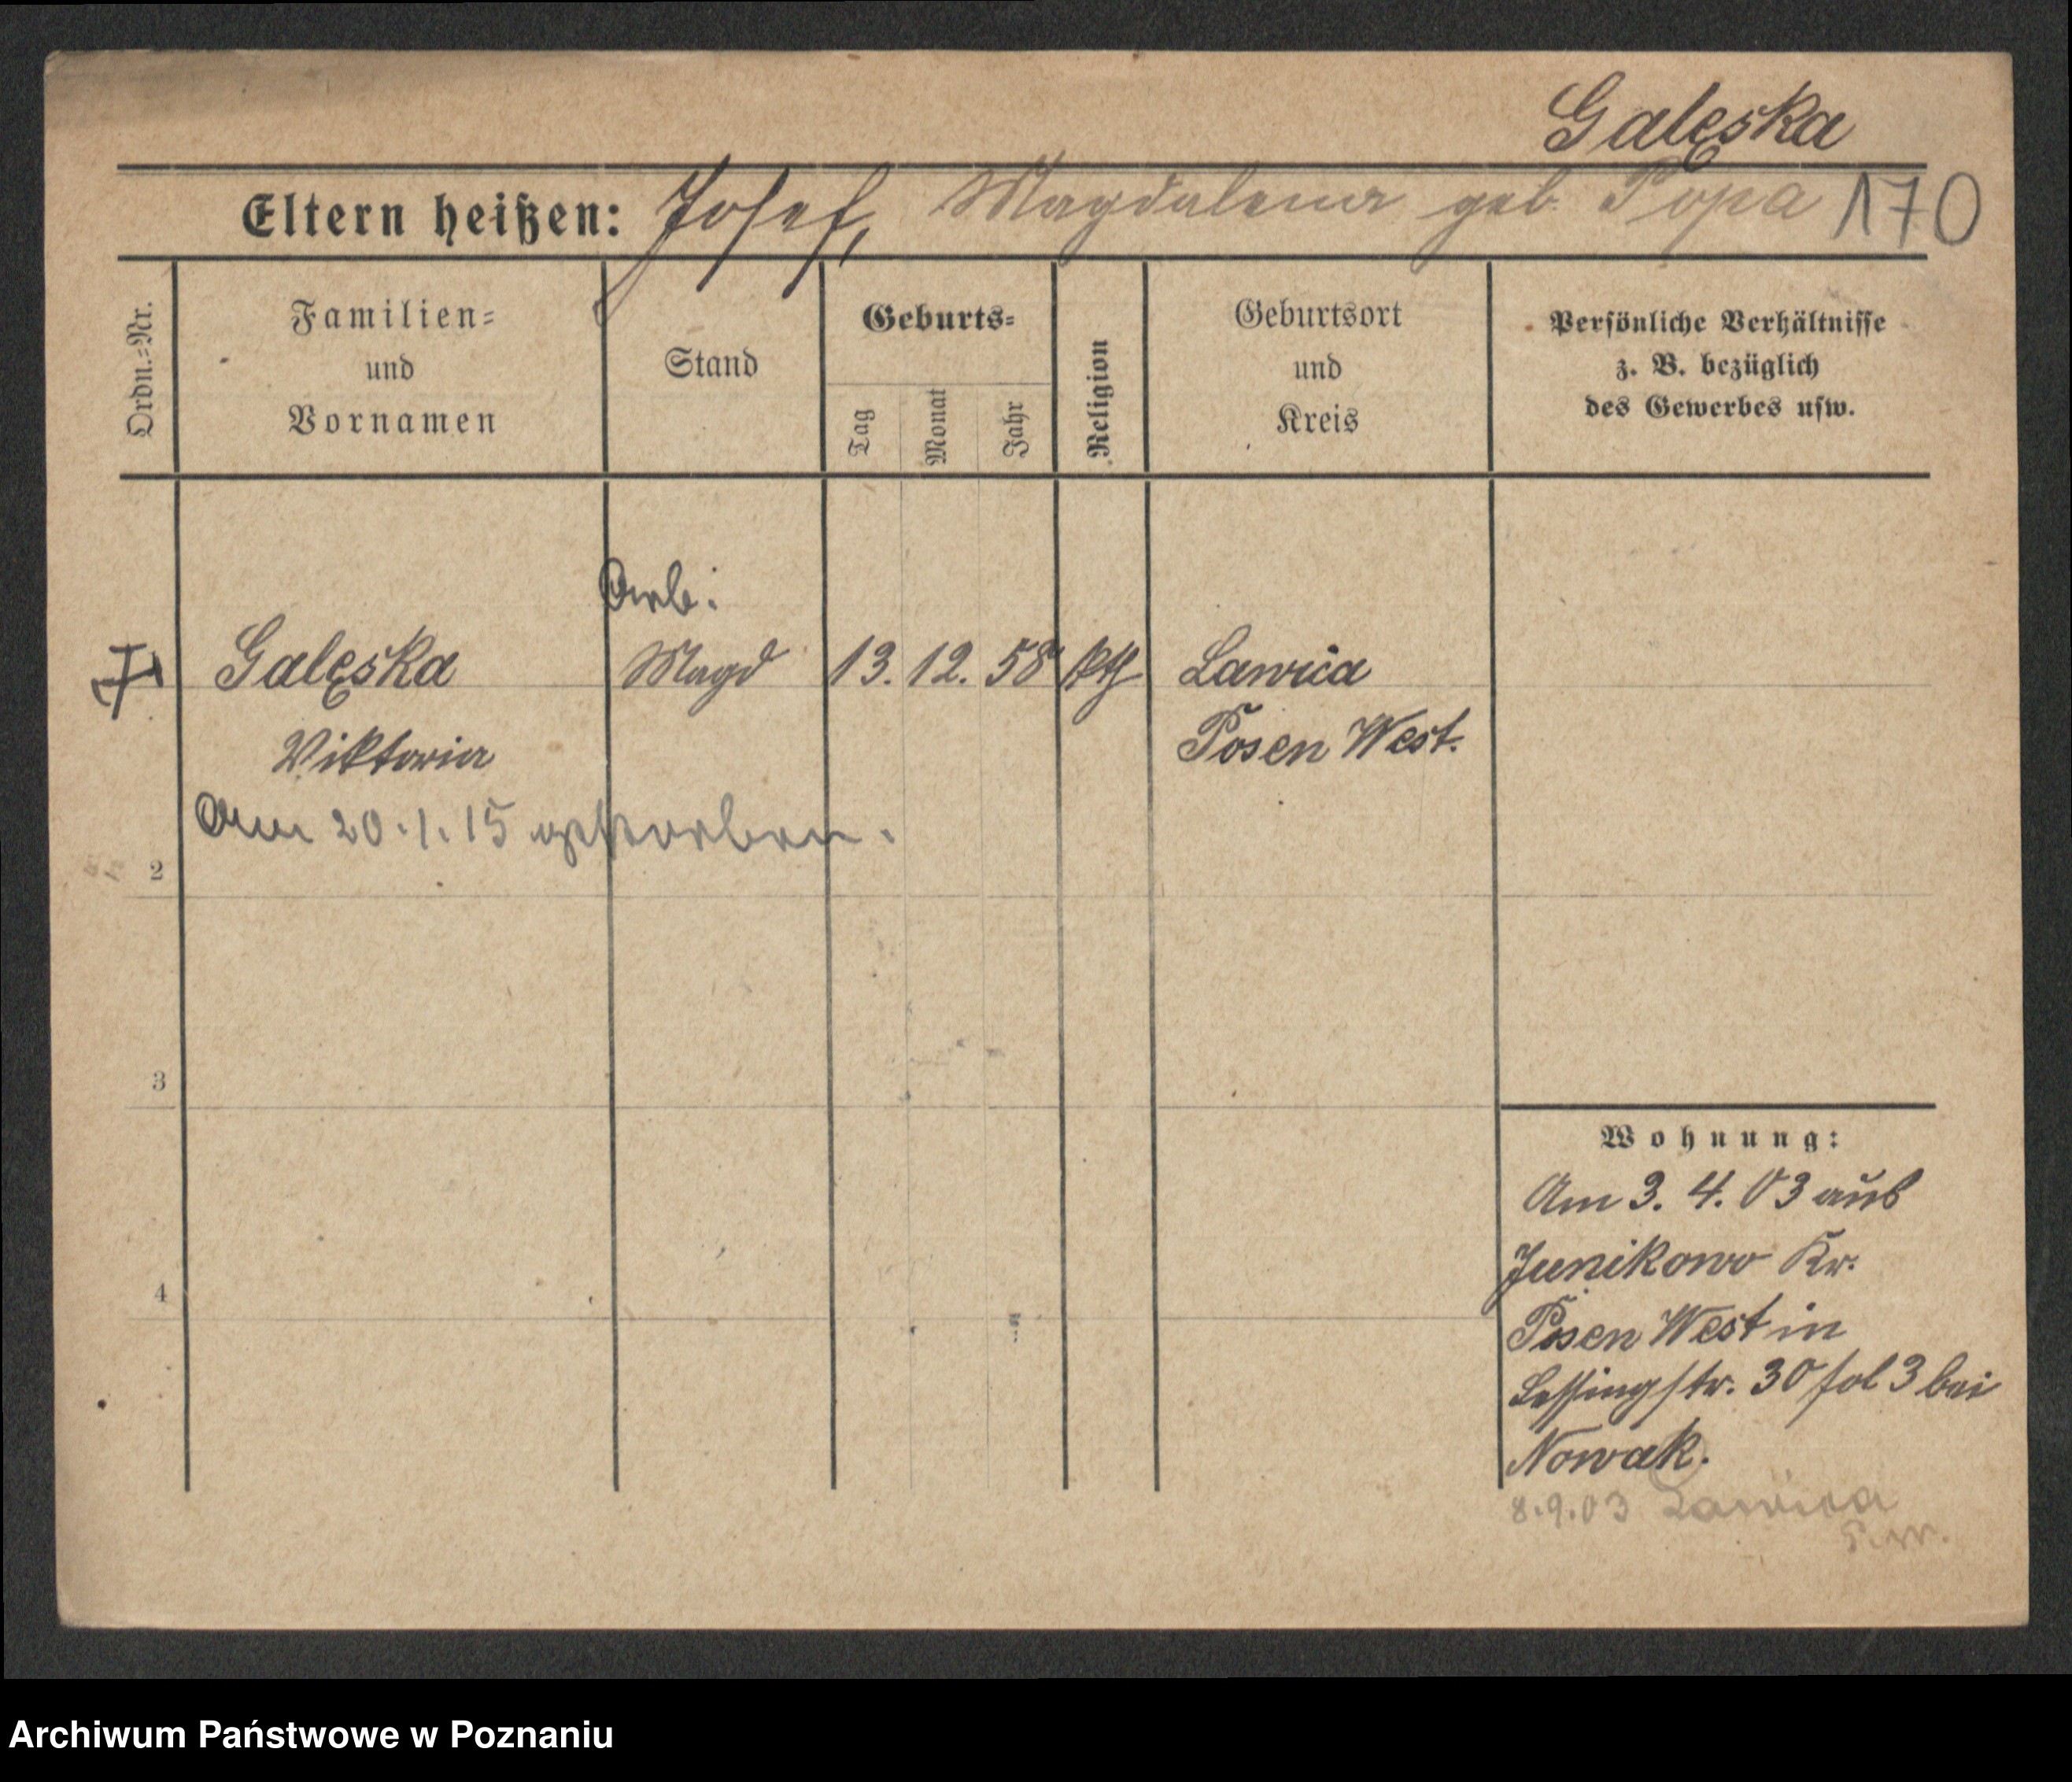 Galęska
Eltern heißen: Josef, Magdalena geb. Popa 170
Ordn.=Nr.
Familien=
und
Vornamen
Stand
Geburts=
Tag
Monat
Jahr
Religion
Geburtsort
und
Kreis
Persönliche Verhältnisse
z. B. bezüglich
des Gewerbes usw.
Arb.
Galęska Magd 13. 12. 58 kth Lawica
Viktoria Posen West.
Am 20.1.15 gestorben.
2
3
4
Wohnung:
Am 3. 4. 03 aus
Junikowo Kr.
Posen West in
Lessingstr. 30 fol 3 bei
Nowak.
8.9.03 Lawica
P.W.
Archiwum Państwowe w Poznaniu